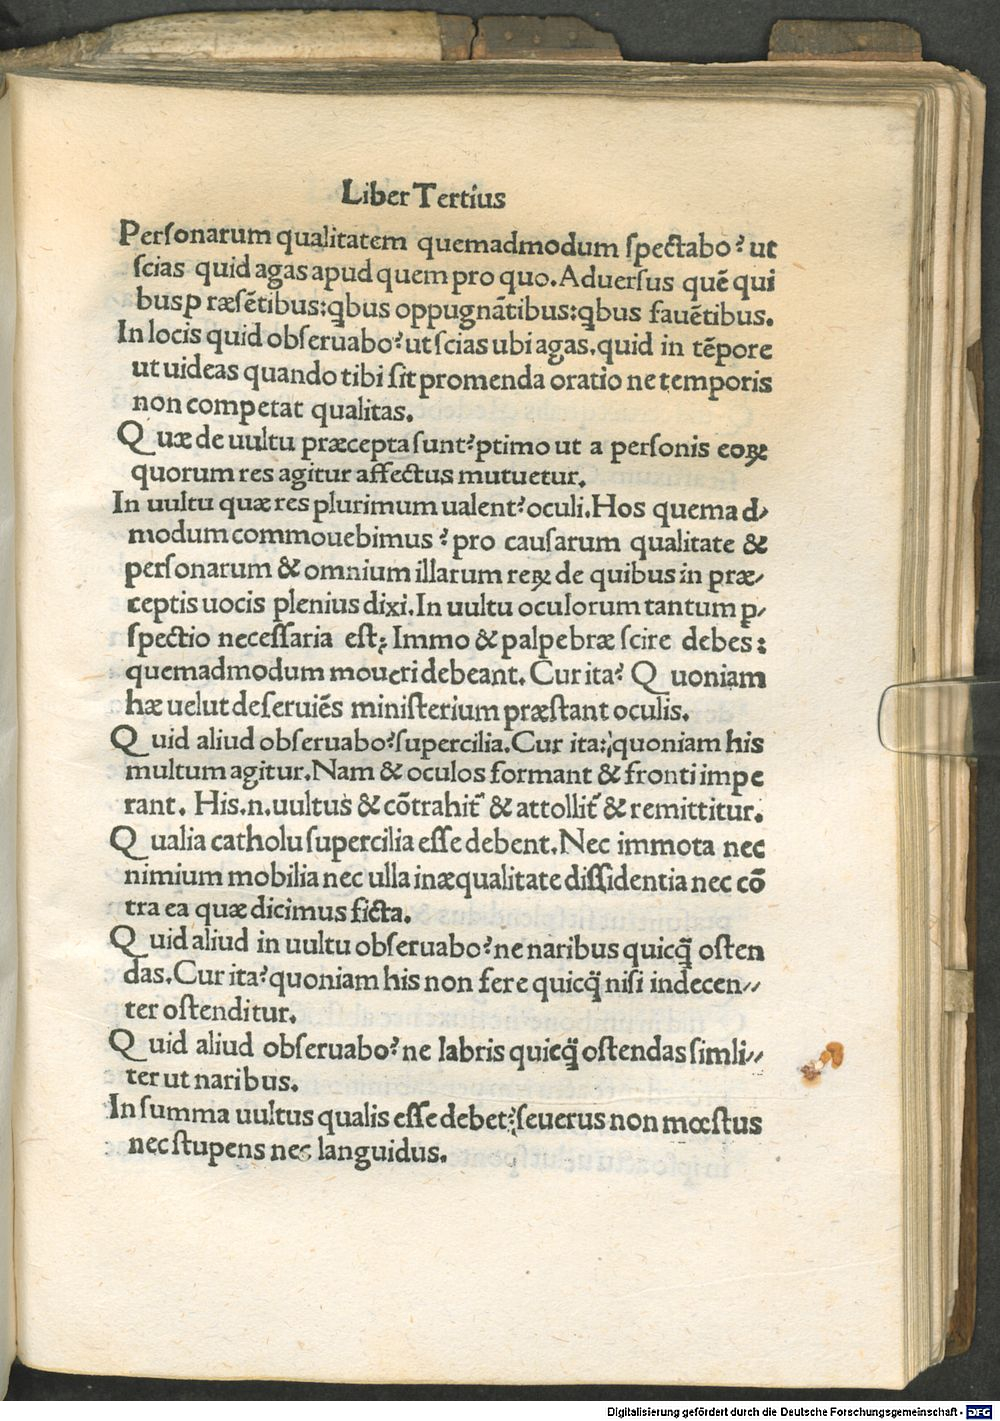 Liber Tertius
Perſonarum qualitatem quemadmodum ſpectabo? ut
ſcias quid agas apud quem pro quo. Aduerſus quē qui
buſp ræſētibus: qbus oppugnātibus: qbus fauētibus.
In locis quid obſeruabo? ut ſcias ubi agas. quid in tēpore
ut uideas quando tibi ſit promenda oratio ne temporis
non competat qualitas.
Quæ de uultu præcepta ſunt? ptimo ut a perſonis eoꝝ
quorum res agitur affectus mutuetur.
In uultu quæ res plurimum ualent? oculi. Hos quemad-
modum commouebimus? pro cauſarum qualitate &
perſonarum & omnium illarum reꝝ de quibus in præ-
ceptis uocis plenius dixi. In uultu oculorum tantum ꝑ-
ſpectio neceſſaria eſt? Immo & palpebræ ſcire debes:
quemadmodum moueri debeant. Cur ita? Quoniam
hæ uelut deſeruiēs miniſterium præſtant oculis.
Quid aliud obſeruabo? ſupercilia. Cur ita? quoniam his
multum agitur. Nam & oculos formant & fronti impe
rant. His .n. uultus & cōtrahit̃ & attollit̃ & remittitur.
Qualia catholu ſupercilia eſſe debent. Nec immota nec
nimium mobilia nec ulla inæqualitate diſſidentia nec cō
tra ea quæ dicimus ficta.
Quid aliud in uultu obſeruabo? ne naribus quicq̃ oſten
das. Cur ita? quoniam his non fere quicq̃ niſi indecen-
ter oſtenditur.
Quid aliud obſeruabo? ne labris quicq̃ oſtendas ſimli-
ter ut naribus.
In ſumma uultus qualis eſſe debet? ſeuerus non mœſtus
nec ſtupens nec languidus.
Digitalisierung gefördert durch die Deutsche Forschungsgemeinschaft - DFG